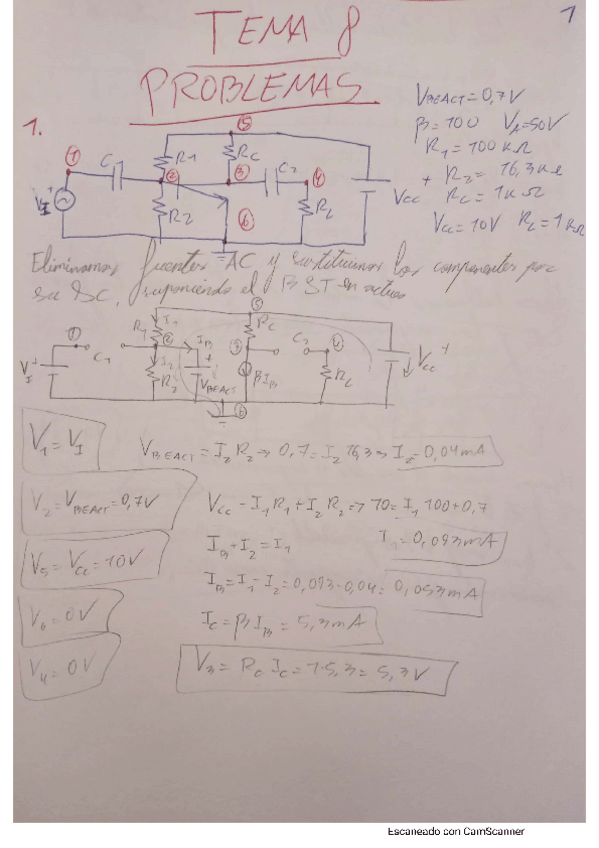 1
TEMA 8
PROBLEMAS
V_BEACT = 0,7V
β = 100 V_A = 50V
R_1 = 100 kΩ
+ R_2 = 16,3 kΩ
R_C = 1kΩ
V_CC = 10V R_L = 1kΩ
1.
① C_1 R_1 ② R_2 ⑤ R_C ③ C_2 ④ R_L ⑥ V_CC V_I +
Eliminamos fuentes AC y sustituimos los componentes por
su DC, suponiendo el BJT en activa
① C_1 R_1 I_1 ② I_2 R_2 I_B V_BEACT ⑤ R_C ③ βI_B C_2 ④ R_L ⑥ V_CC + V_I +
V_1 = V_I
V_BEACT = I_2 R_2 → 0,7 = I_2 16,3 → I_2 = 0,04mA
V_2 = V_BEACT = 0,7V
V_CC = I_1 R_1 + I_2 R_2 => 10 = I_1 100 + 0,7
I_B + I_2 = I_1
I_1 = 0,093mA
V_5 = V_CC = 10V
I_B = I_1 - I_2 = 0,093 - 0,04 = 0,053mA
V_6 = 0V
I_C = β I_B = 5,3mA
V_4 = 0V
V_3 = R_C I_C = 1·5,3 = 5,3V
Escaneado con CamScanner